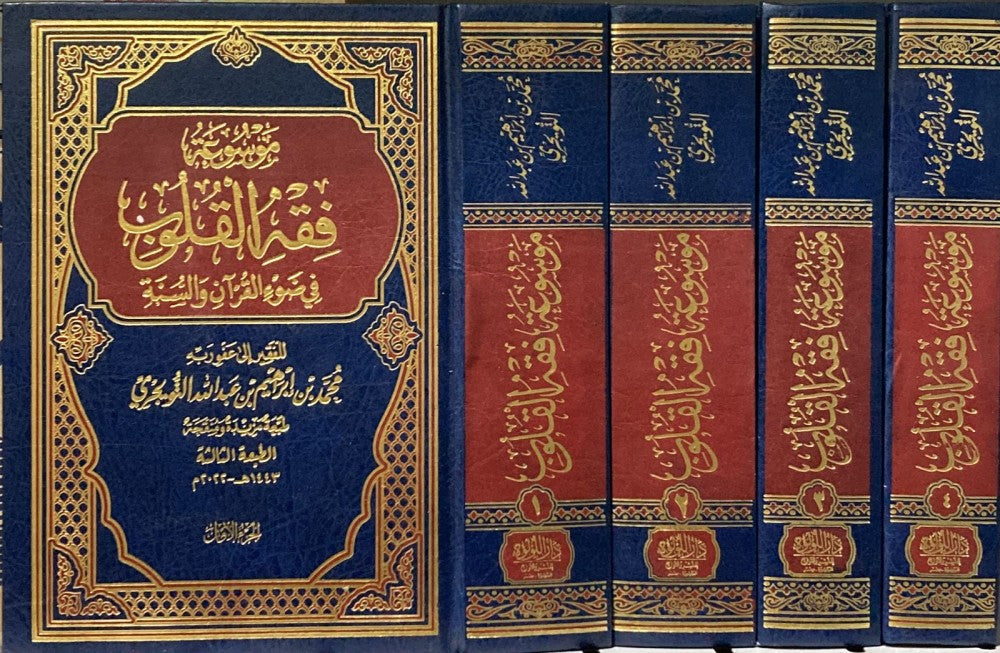 موسوعة
فقه القلوب
في ضوء القرآن والسنة
للفقير إلى عفو ربه
محمد بن إبراهيم بن عبدالله التويجري
طبعة مزيدة ومنقحة
الطبعة الثالثة
١٤٤٣هـ-٢٠٢٢م
الجزء الأول
محمد بن إبراهيم بن عبدالله
التويجري
موسوعة فقه القلوب
١
دار اللؤلؤة
محمد بن إبراهيم بن عبدالله
التويجري
موسوعة فقه القلوب
٢
دار اللؤلؤة
محمد بن إبراهيم بن عبدالله
التويجري
موسوعة فقه القلوب
٣
دار اللؤلؤة
محمد بن إبراهيم بن عبدالله
التويجري
موسوعة فقه القلوب
٤
دار اللؤلؤة